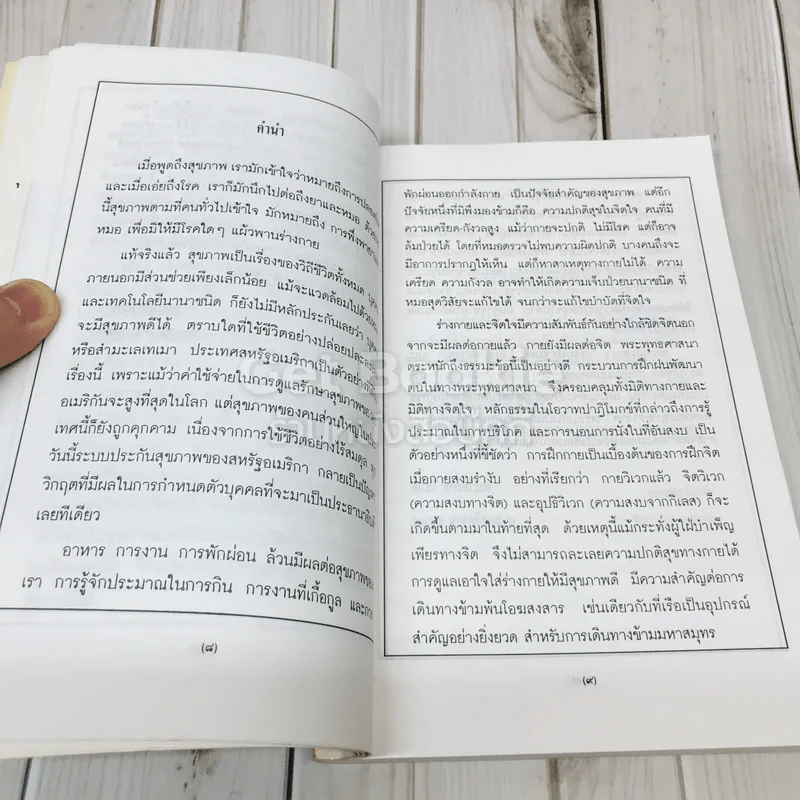 คำนำ
เมื่อพูดถึงสุขภาพ เรามักเข้าใจว่าหมายถึงการปลอด
และเมื่อเอ่ยถึงโรค เราก็มักนึกไปต่อถึงยาและหมอ ด้วย
นี้สุขภาพตามที่คนทั่วไปเข้าใจ มักหมายถึง การพึ่งพา
หมอ เพื่อมิให้มีโรคใดๆ แผ้วพานร่างกาย
แท้จริงแล้ว สุขภาพเป็นเรื่องของวิถีชีวิตทั้งหมด
ภายนอกมีส่วนช่วยเพียงเล็กน้อย แม้จะแวดล้อมไปด้วย
และเทคโนโลยีนานาชนิด ก็ยังไม่มีหลักประกันเลยว่า
จะมีสุขภาพดีได้ ตราบใดที่ใช้ชีวิตอย่างปล่อยปละละ
หรือสำมะเลเทเมา ประเทศสหรัฐอเมริกาเป็นตัวอย่าง
เรื่องนี้ เพราะแม้ว่าค่าใช้จ่ายในการดูแลรักษาสุขภาพ
อเมริกันจะสูงที่สุดในโลก แต่สุขภาพของคนส่วนใหญ่ใน
เทศนี้ก็ยังถูกคุกคาม เนื่องจากการใช้ชีวิตอย่างไร้สมดุล
วันนี้ระบบประกันสุขภาพของสหรัฐอเมริกา กลายเป็นปัญหา
วิกฤตที่มีผลในการกำหนดตัวบุคคลที่จะมาเป็นประธานาธิบดี
เลยทีเดียว
อาหาร การงาน การพักผ่อน ล้วนมีผลต่อสุขภาพของ
เรา การรู้จักประมาณในการกิน การงานที่เกื้อกูล และการ
(๘)
พักผ่อนออกกำลังกาย เป็นปัจจัยสำคัญของสุขภาพ แต่อีก
ปัจจัยหนึ่งที่มิพึงมองข้ามก็คือ ความปกติสุขในจิตใจ คนที่มี
ความเครียด-กังวลสูง แม้ว่ากายจะปกติ ไม่มีโรค แต่ก็อาจ
ล้มป่วยได้ โดยที่หมอตรวจไม่พบความผิดปกติ บางคนถึงจะ
มีอาการปรากฏให้เห็น แต่ก็หาสาเหตุทางกายไม่ได้ ความ
เครียด ความกังวล อาจทำให้เกิดความเจ็บป่วยนานาชนิด ที่
หมอสุดวิสัยจะแก้ไขได้ จนกว่าจะแก้ไขบำบัดที่จิตใจ
ร่างกายและจิตใจมีความสัมพันธ์กันอย่างใกล้ชิดจิตนอก
จากจะมีผลต่อกายแล้ว กายยังมีผลต่อจิต พระพุทธศาสนา
ตระหนักถึงธรรมะข้อนี้เป็นอย่างดี กระบวนการฝึกฝนพัฒนา
ตนในทางพระพุทธศาสนา จึงครอบคลุมทั้งมิติทางกายและ
มิติทางจิตใจ หลักธรรมในโอวาทปาฏิโมกข์ที่กล่าวถึงการรู้
ประมาณในการบริโภค และการนอนการนั่งในที่อันสงบ เป็น
ตัวอย่างหนึ่งที่ชี้ชัดว่า การฝึกกายเป็นเบื้องต้นของการฝึกจิต
เมื่อกายสงบรำงับ อย่างที่เรียกว่า กายวิเวกแล้ว จิตวิเวก
(ความสงบทางจิต) และอุปธิวิเวก (ความสงบจากกิเลส) ก็จะ
เกิดขึ้นตามมาในท้ายที่สุด ด้วยเหตุนี้แม้กระทั่งผู้ใฝ่บำเพ็ญ
เพียรทางจิต จึงไม่สามารถละเลยความปกติสุขทางกายได้
การดูแลเอาใจใส่ร่างกายให้มีสุขภาพดี มีความสำคัญต่อการ
เดินทางข้ามพ้นโอฆสงสาร เช่นเดียวกับที่เรือเป็นอุปกรณ์
สำคัญอย่างยิ่งยวด สำหรับการเดินทางข้ามมหาสมุทร
(๙)